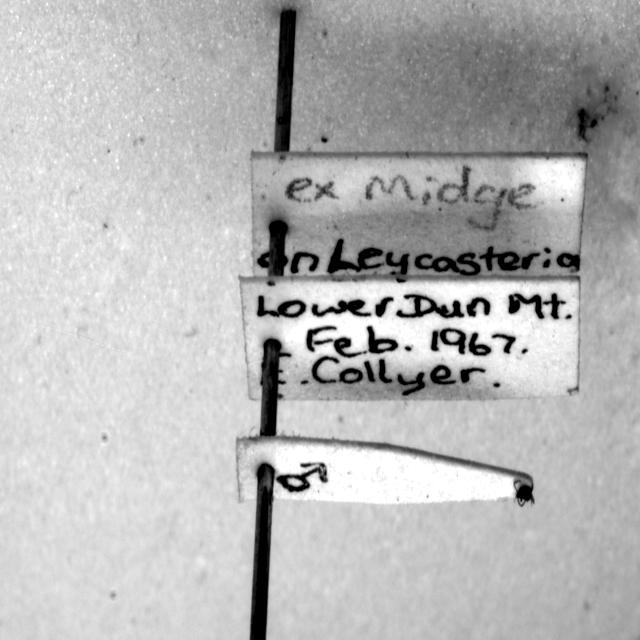 ex Midge
on Leycasteria
Lower Dun Mt.
Feb. 1967.
E. Collyer.
♂